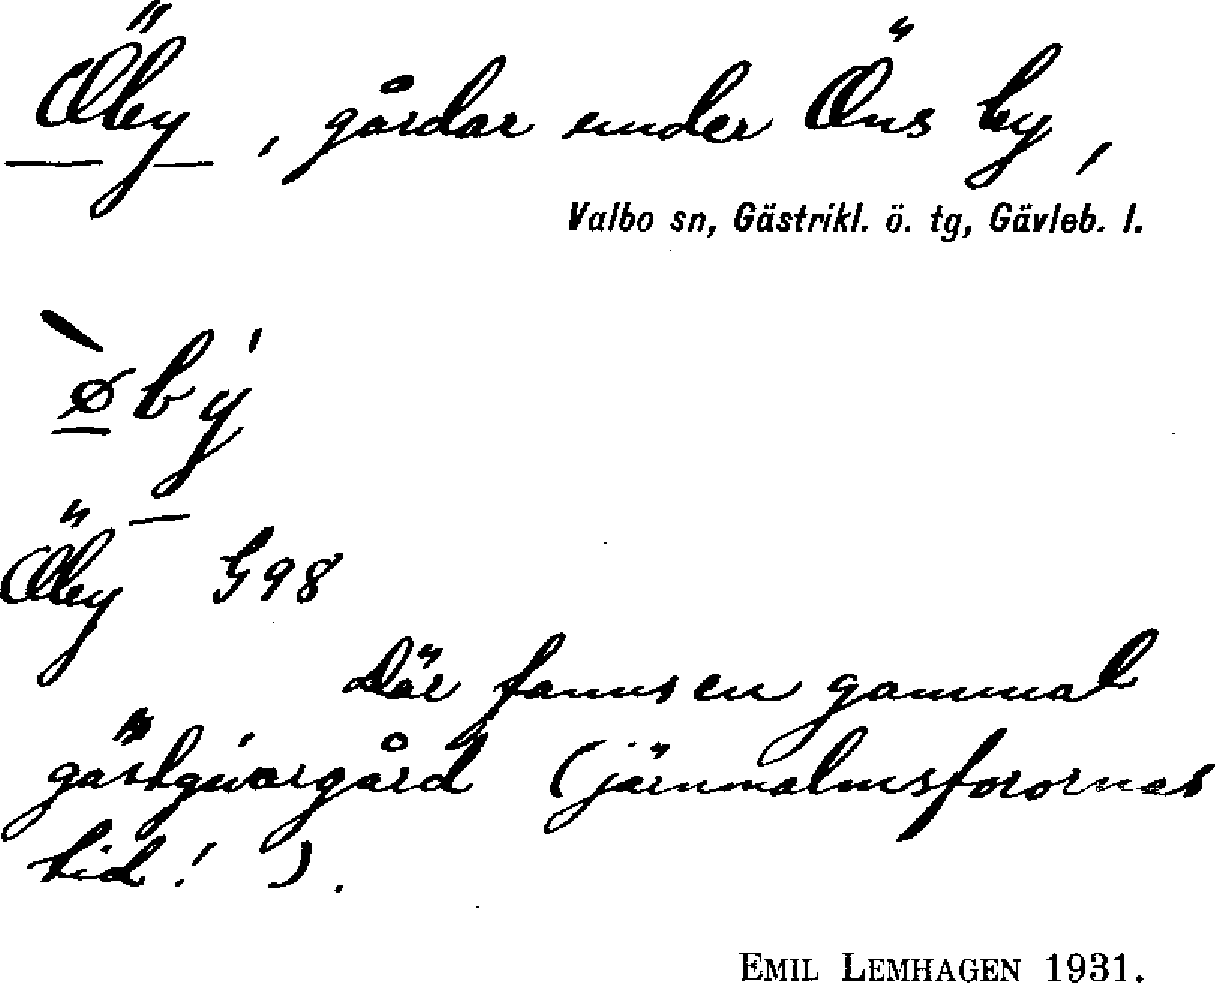 Öby, gårdar under Öns by,
Valbo sn, Gästrikl. ö. tg, Gävleb. l.
`øbý
Öby G98
Där fanns en gammal
gästgivargård (järnmalmsforornas
tid! ).
EMIL LEMHAGEN 1931.